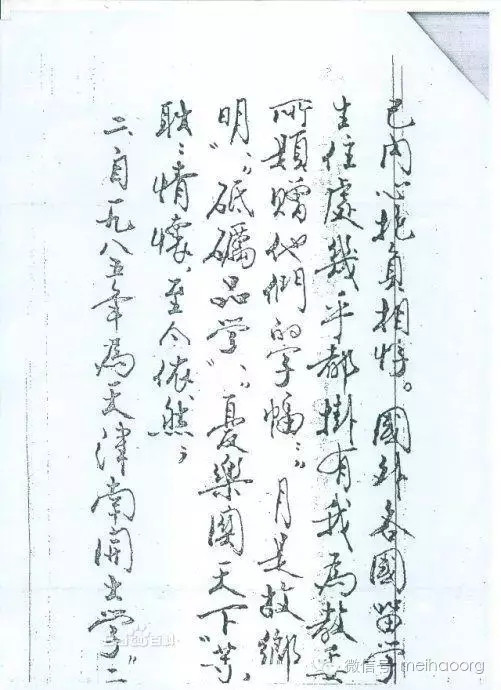 己内心抱負相悖。國外各國留学
生住處幾乎都掛有我為教委
所題贈他們的字幅："月是故鄉
明"、"砥礪品学"、"憂樂關天下"等，
耿〻情懷，至今依然；
二、自一九八五年為天津南開大学"二
微信号: meihaoorg